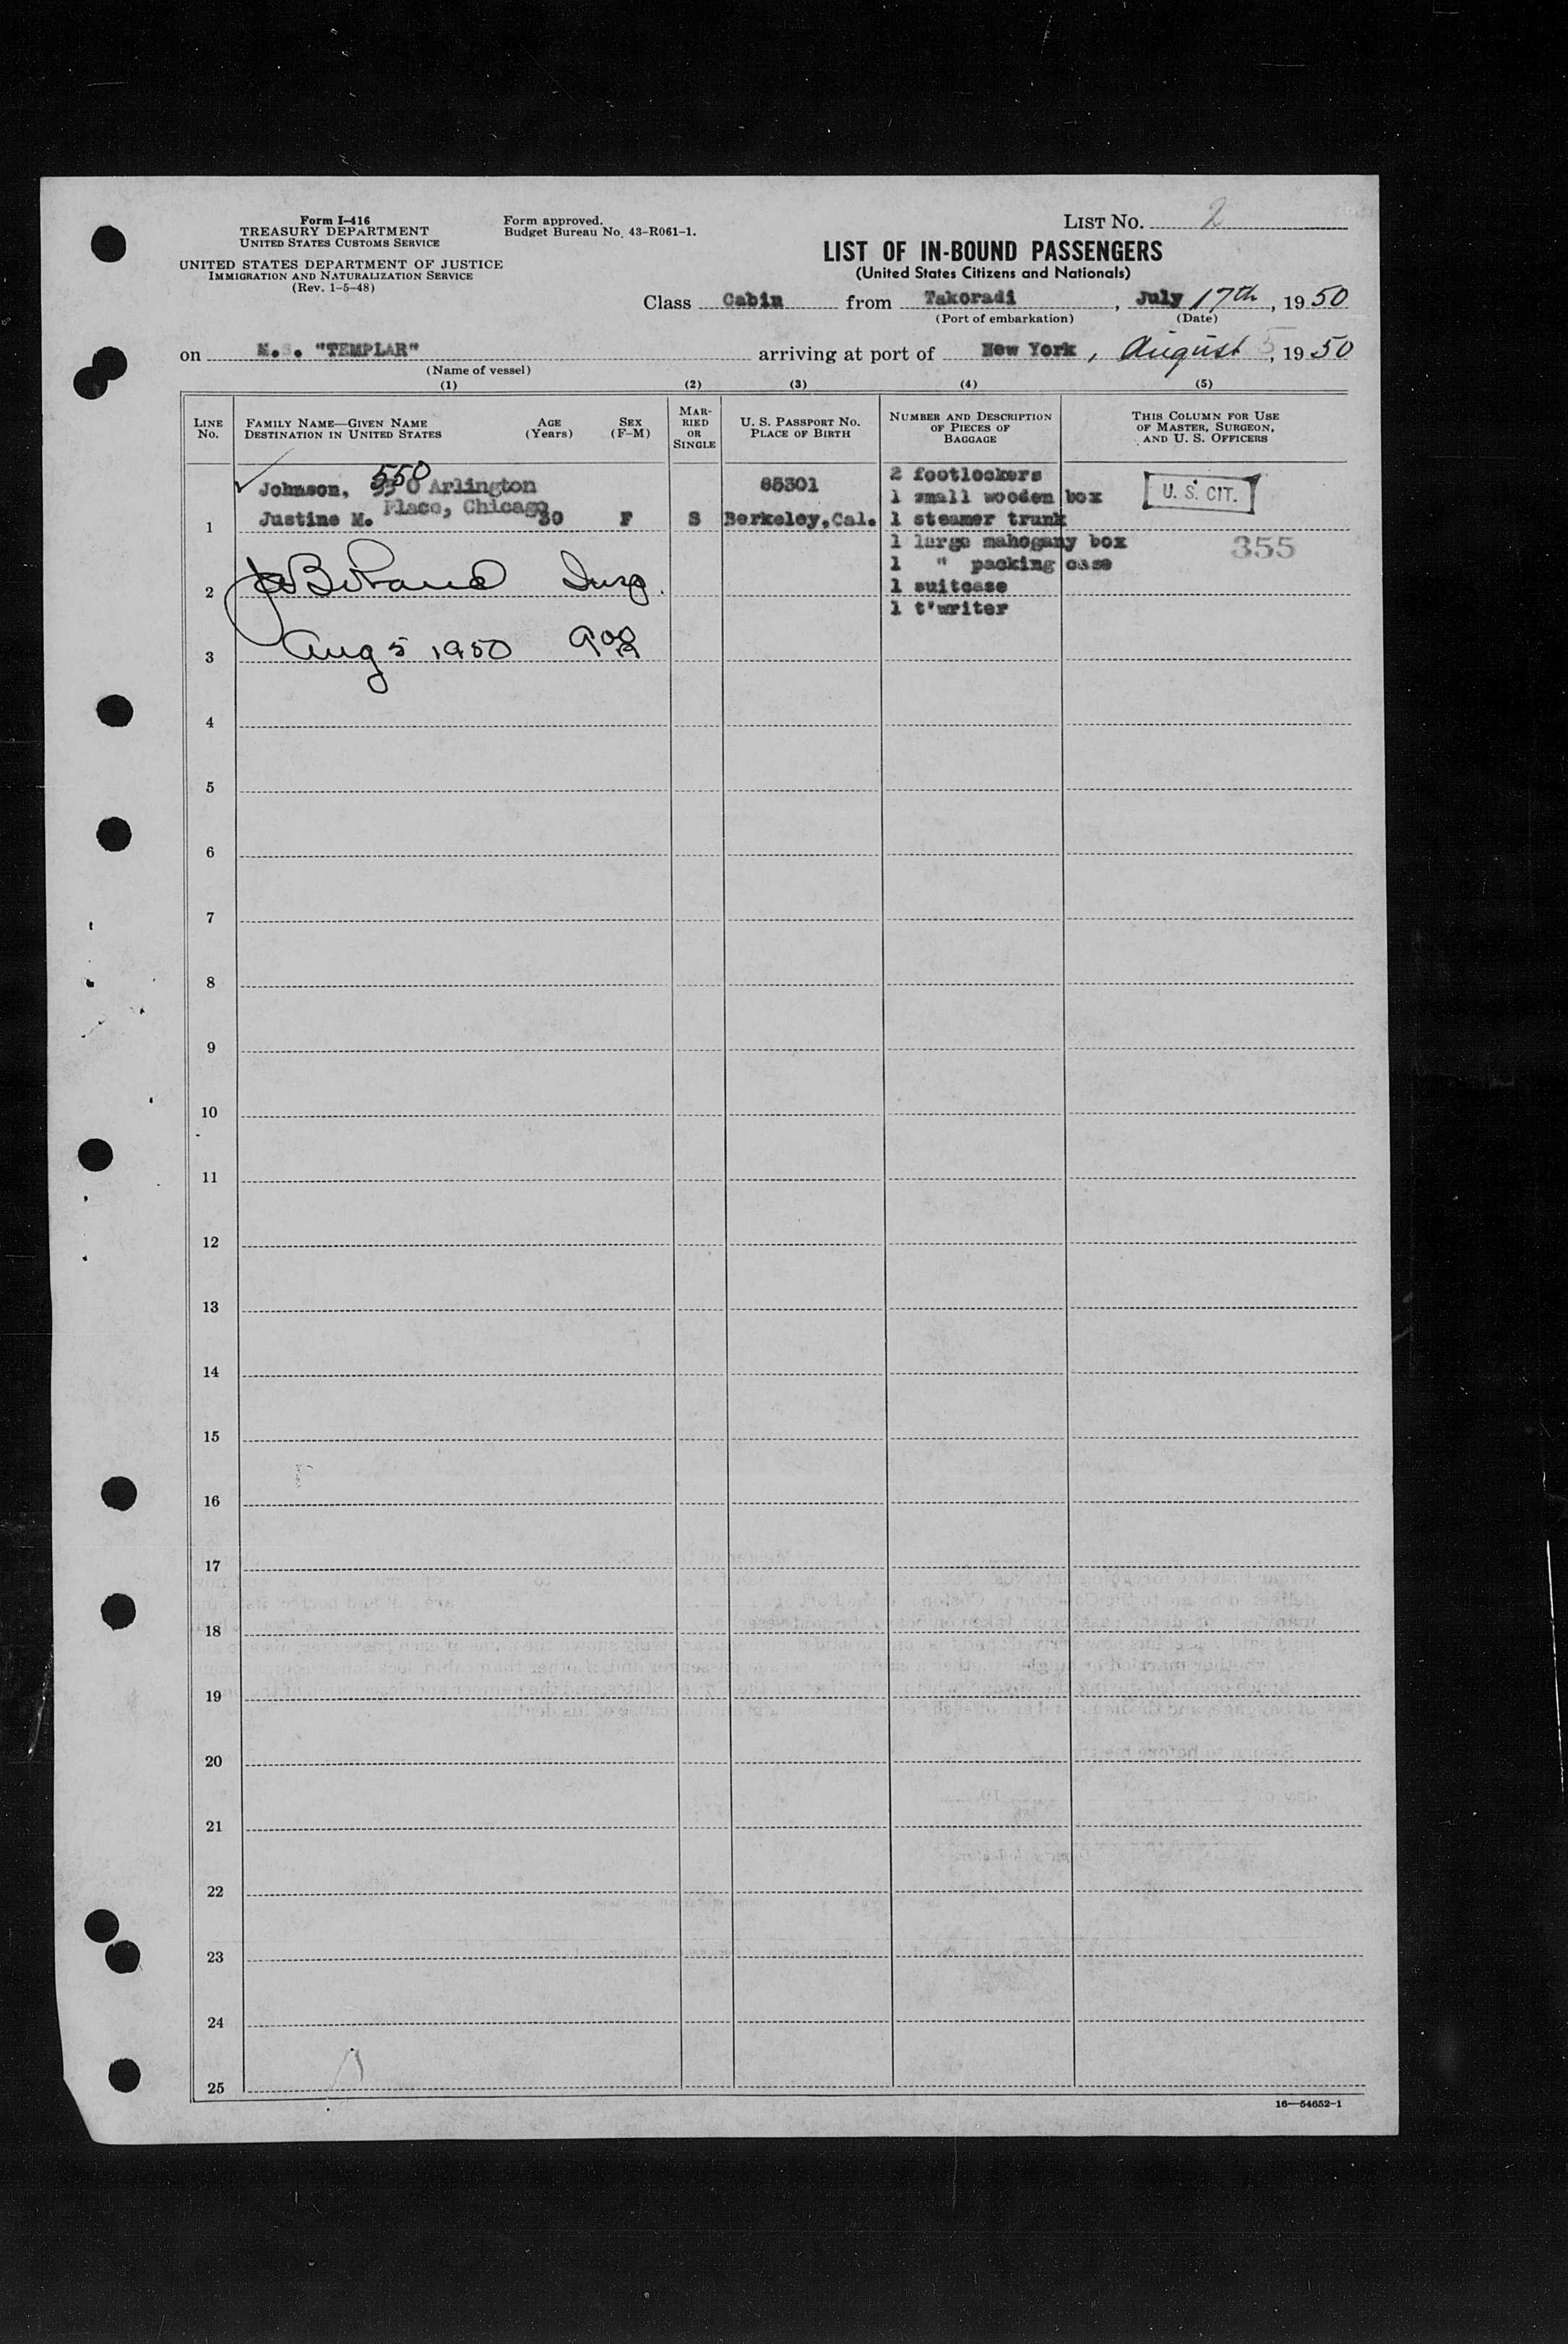 Form I-416
TREASURY DEPARTMENT
UNITED STATES CUSTOMS SERVICE
UNITED STATES DEPARTMENT OF JUSTICE
IMMIGRATION AND NATURALIZATION SERVICE
(Rev. 1-5-48)
Form approved.
Budget Bureau No. 43-R061-1.
LIST No. 2
LIST OF IN-BOUND PASSENGERS
(United States Citizens and Nationals)
Class Cabin from Takoradi, July 17th, 1950
(Port of embarkation) (Date)
on M.S. "TEMPLAR" arriving at port of New York, August 5, 1950
(Name of vessel)
(1) (2) (3) (4) (5)
LINE No.
FAMILY NAME—GIVEN NAME
DESTINATION IN UNITED STATES
AGE
(Years)
SEX
(F-M)
MARRIED OR SINGLE
U. S. PASSPORT No.
PLACE OF BIRTH
NUMBER AND DESCRIPTION
OF PIECES OF
BAGGAGE
THIS COLUMN FOR USE
OF MASTER, SURGEON,
AND U. S. OFFICERS
550
Johnson, Arlington 85301 2 footlockers
Place, Chicago 1 small wooden box U. S. CIT.
1 Justine M. 30 F S Berkeley, Cal. 1 steamer trunk
1 large mahogany box 355
1 " packing case
2 Insp. 1 suitcase
1 t'writer
3 Aug 5 1950
4
5
6
7
8
9
10
11
12
13
14
15
16
17
18
19
20
21
22
23
24
25
16—54652-1